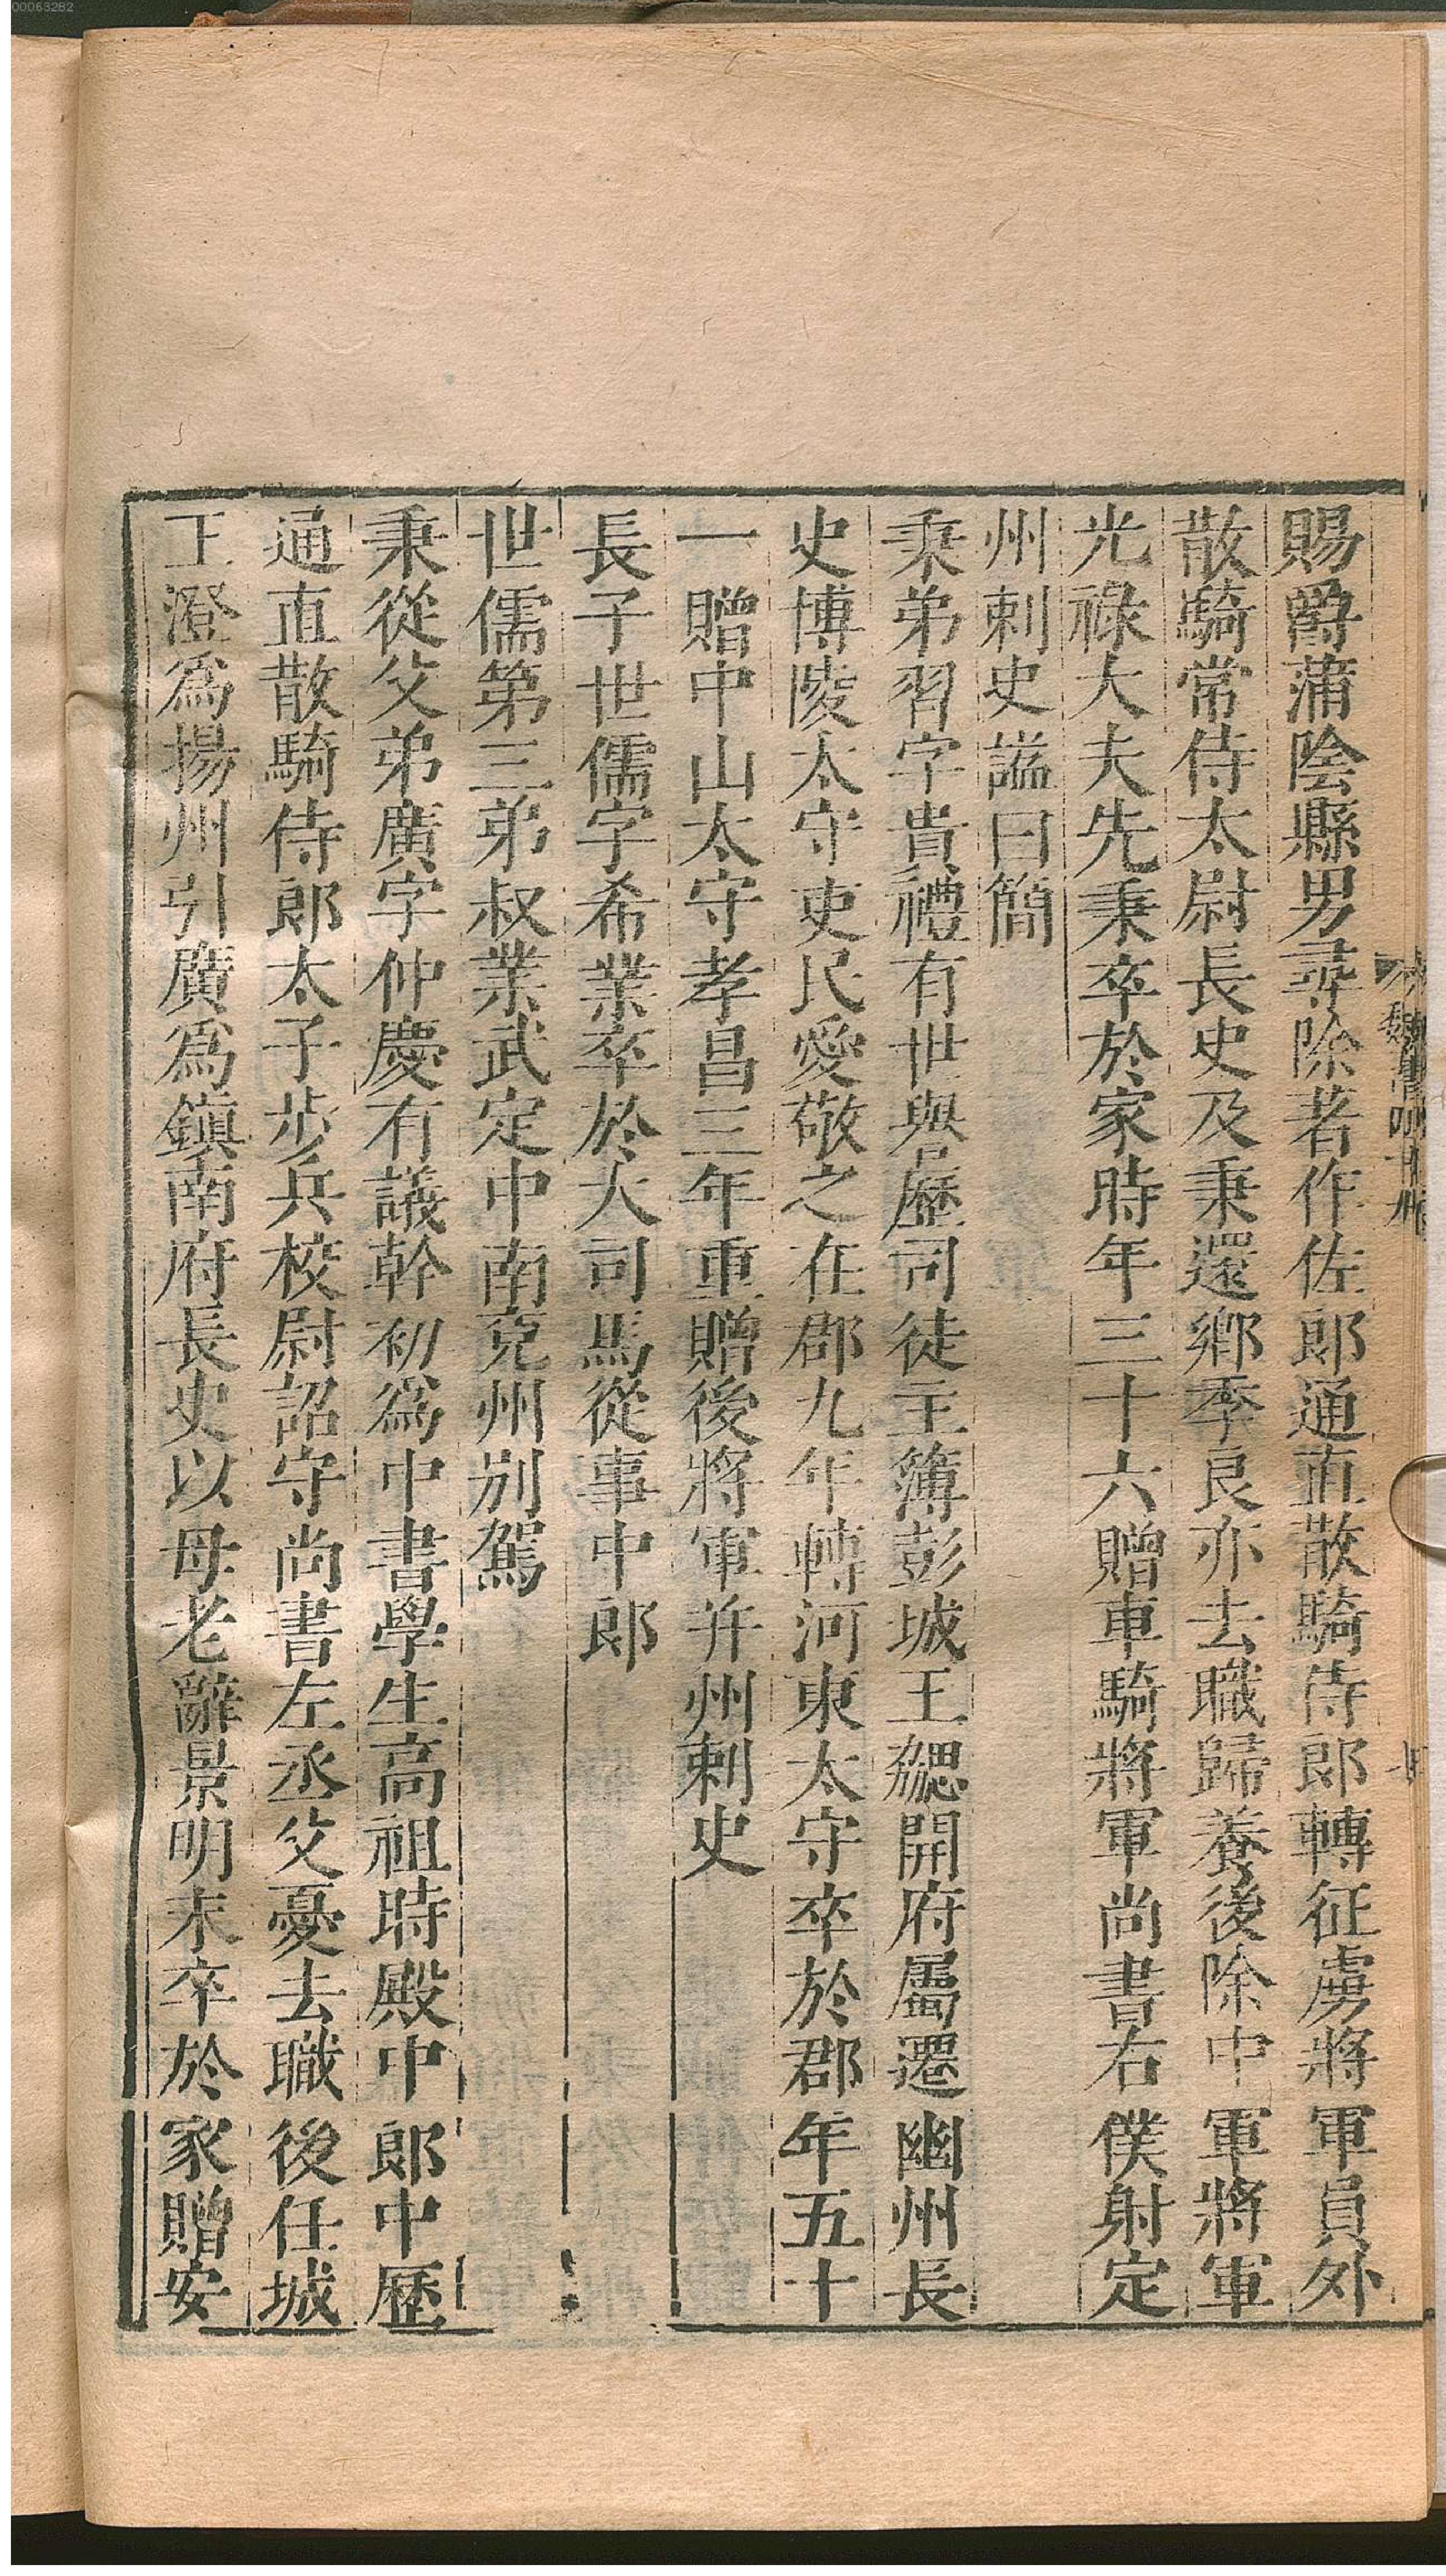 賜爵蒲陰縣男尋除著作佐郎通直散騎侍郎轉征虜將軍員外
散騎常侍太尉長史及秉還鄉季良亦去職歸養後除中軍將軍
光祿大夫先秉卒於家時年三十六贈車騎將軍尚書右僕射定
州刺史謚曰簡
秉弟習字貴禮有世譽歷司徒主簿彭城王勰開府屬遷幽州長
史博陵太守吏民愛敬之在郡九年轉河東太守卒於郡年五十
一贈中山太守孝昌三年重贈後將軍并州刺史
長子世儒字希業卒於大司馬從事中郎
世儒第三弟叔業武定中南兗州別駕
秉從父弟廣字仲慶有議幹初爲中書學生高祖時殿中郎中歷
通直散騎侍郎太子步兵校尉詔守尚書左丞父憂去職後任城
王澄爲揚州引廣爲鎮南府長史以母老辭景明末卒於家贈安
00063282